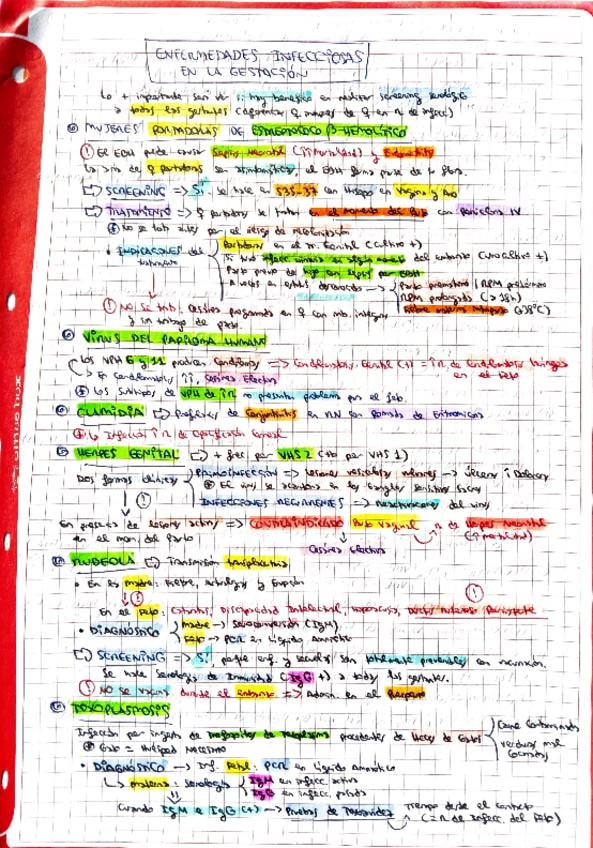 ENFERMEDADES INFECCIOSAS
EN LA GESTACIÓN
Lo + importante será ver si hay beneficio en realizar screening serológico
a todas las gestantes
MUJERES PORTADORAS DE ESTREPTOCOCO β-HEMOLÍTICO
El EBH puede causar Sepsis Neonatal (↑↑ mortalidad) y
La mayoría de portadoras son asintomáticas, el EBH forma parte de la flora.
SCREENING => Sí. se hace en S35-37 con Hisopo en Vagina y Ano
TRATAMIENTO => portadoras se tratan en el momento del Parto con penicilina IV
No se trata antes por el riesgo de recolonización
INDICACIONES del tratamiento
Portadoras en el tr. genital (cultivo +)
(urocultivo +)
Parto previo de hijo con sepsis por EBH
Parto prematuro / RPM pretérmino
RPM prolongada (> 18h)
Fiebre materna intraparto (≥38ºC)
NO se trata: Cesárea programada en con mb. íntegras
y sin trabajo de parto.
VIRUS DEL PAPILOMA HUMANO
Los VPH 6 y 11 producen Condilomas => Condilomatosis Genital (+) = ↑R de Condilomatosis laríngea
en el Feto
En condilomatosis ↑↑, cesárea electiva
Los subtipos de VPH de ↑R no presentan problema para el feto.
CLAMIDIA => Profilaxis de Conjuntivitis en RN con Pomada de Eritromicina
HERPES GENITAL => + frec por VHS 2 (tb por VHS 1)
Dos formas clínicas
PRIMOINFECCIÓN => Lesiones vesiculosas → úlceras ↑ Dolorosas
El virus se acantona en los ganglios sensitivos sacros
INFECCIONES RECURRENTES => reactivaciones del virus
En presencia de lesiones activas => CONTRAINDICADO Parto Vaginal R de Herpes Neonatal
en el mom. del Parto
(↑ mortalidad)
Cesárea Electiva
RUBEOLA => Transmisión transplacentaria
En la madre: Fiebre, artralgias y Erupción
En el Feto: Cataratas, Discapacidad Intelectual, Hipoacusia, Ductus Arterioso Persistente
DIAGNÓSTICO
madre → Seroconversión (IgM)
Feto → PCR en Líquido Amniótico
SCREENING => Sí porque enf. y secuelas son totalmente prevenibles con vacunación.
Se hace serología de Inmunidad (IgG +) a todas las gestantes.
NO se vacuna durante el embarazo => Admin. en el Puerperio
TOXOPLASMOSIS
Infección por ingesta de de Toxoplasma procedentes de Heces de Gatos
Carne Contaminada
verduras mal
lavadas
Gato = Huésped Necesario
DIAGNÓSTICO → Inf. Fetal: PCR en Líquido Amniótico
materna: serología
IgM en infecc. activa
IgG en infecc. pasada
Cuando IgM e IgG (+) → Pruebas de Tiempo desde el contacto
(= R de Infecc. del Feto)